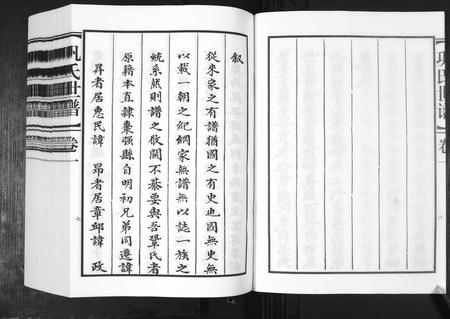 叙
從來家之有譜猶國之有史也國無史無
以載一朝之紀綱家無譜無以誌一族之
統系然則譜之攸關不綦要與吾鞏氏者
原籍本直隸棗强縣自明初兄弟同遷諱
昇者居惠民諱 昂者居章邱諱 政
巩氏世譜 卷一
七